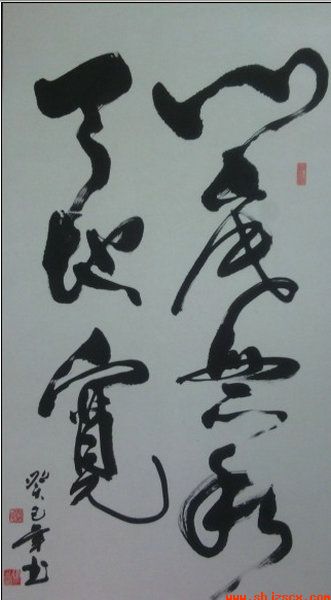 心底無私
天地寬
癸巳年书
www.shjzscx.com